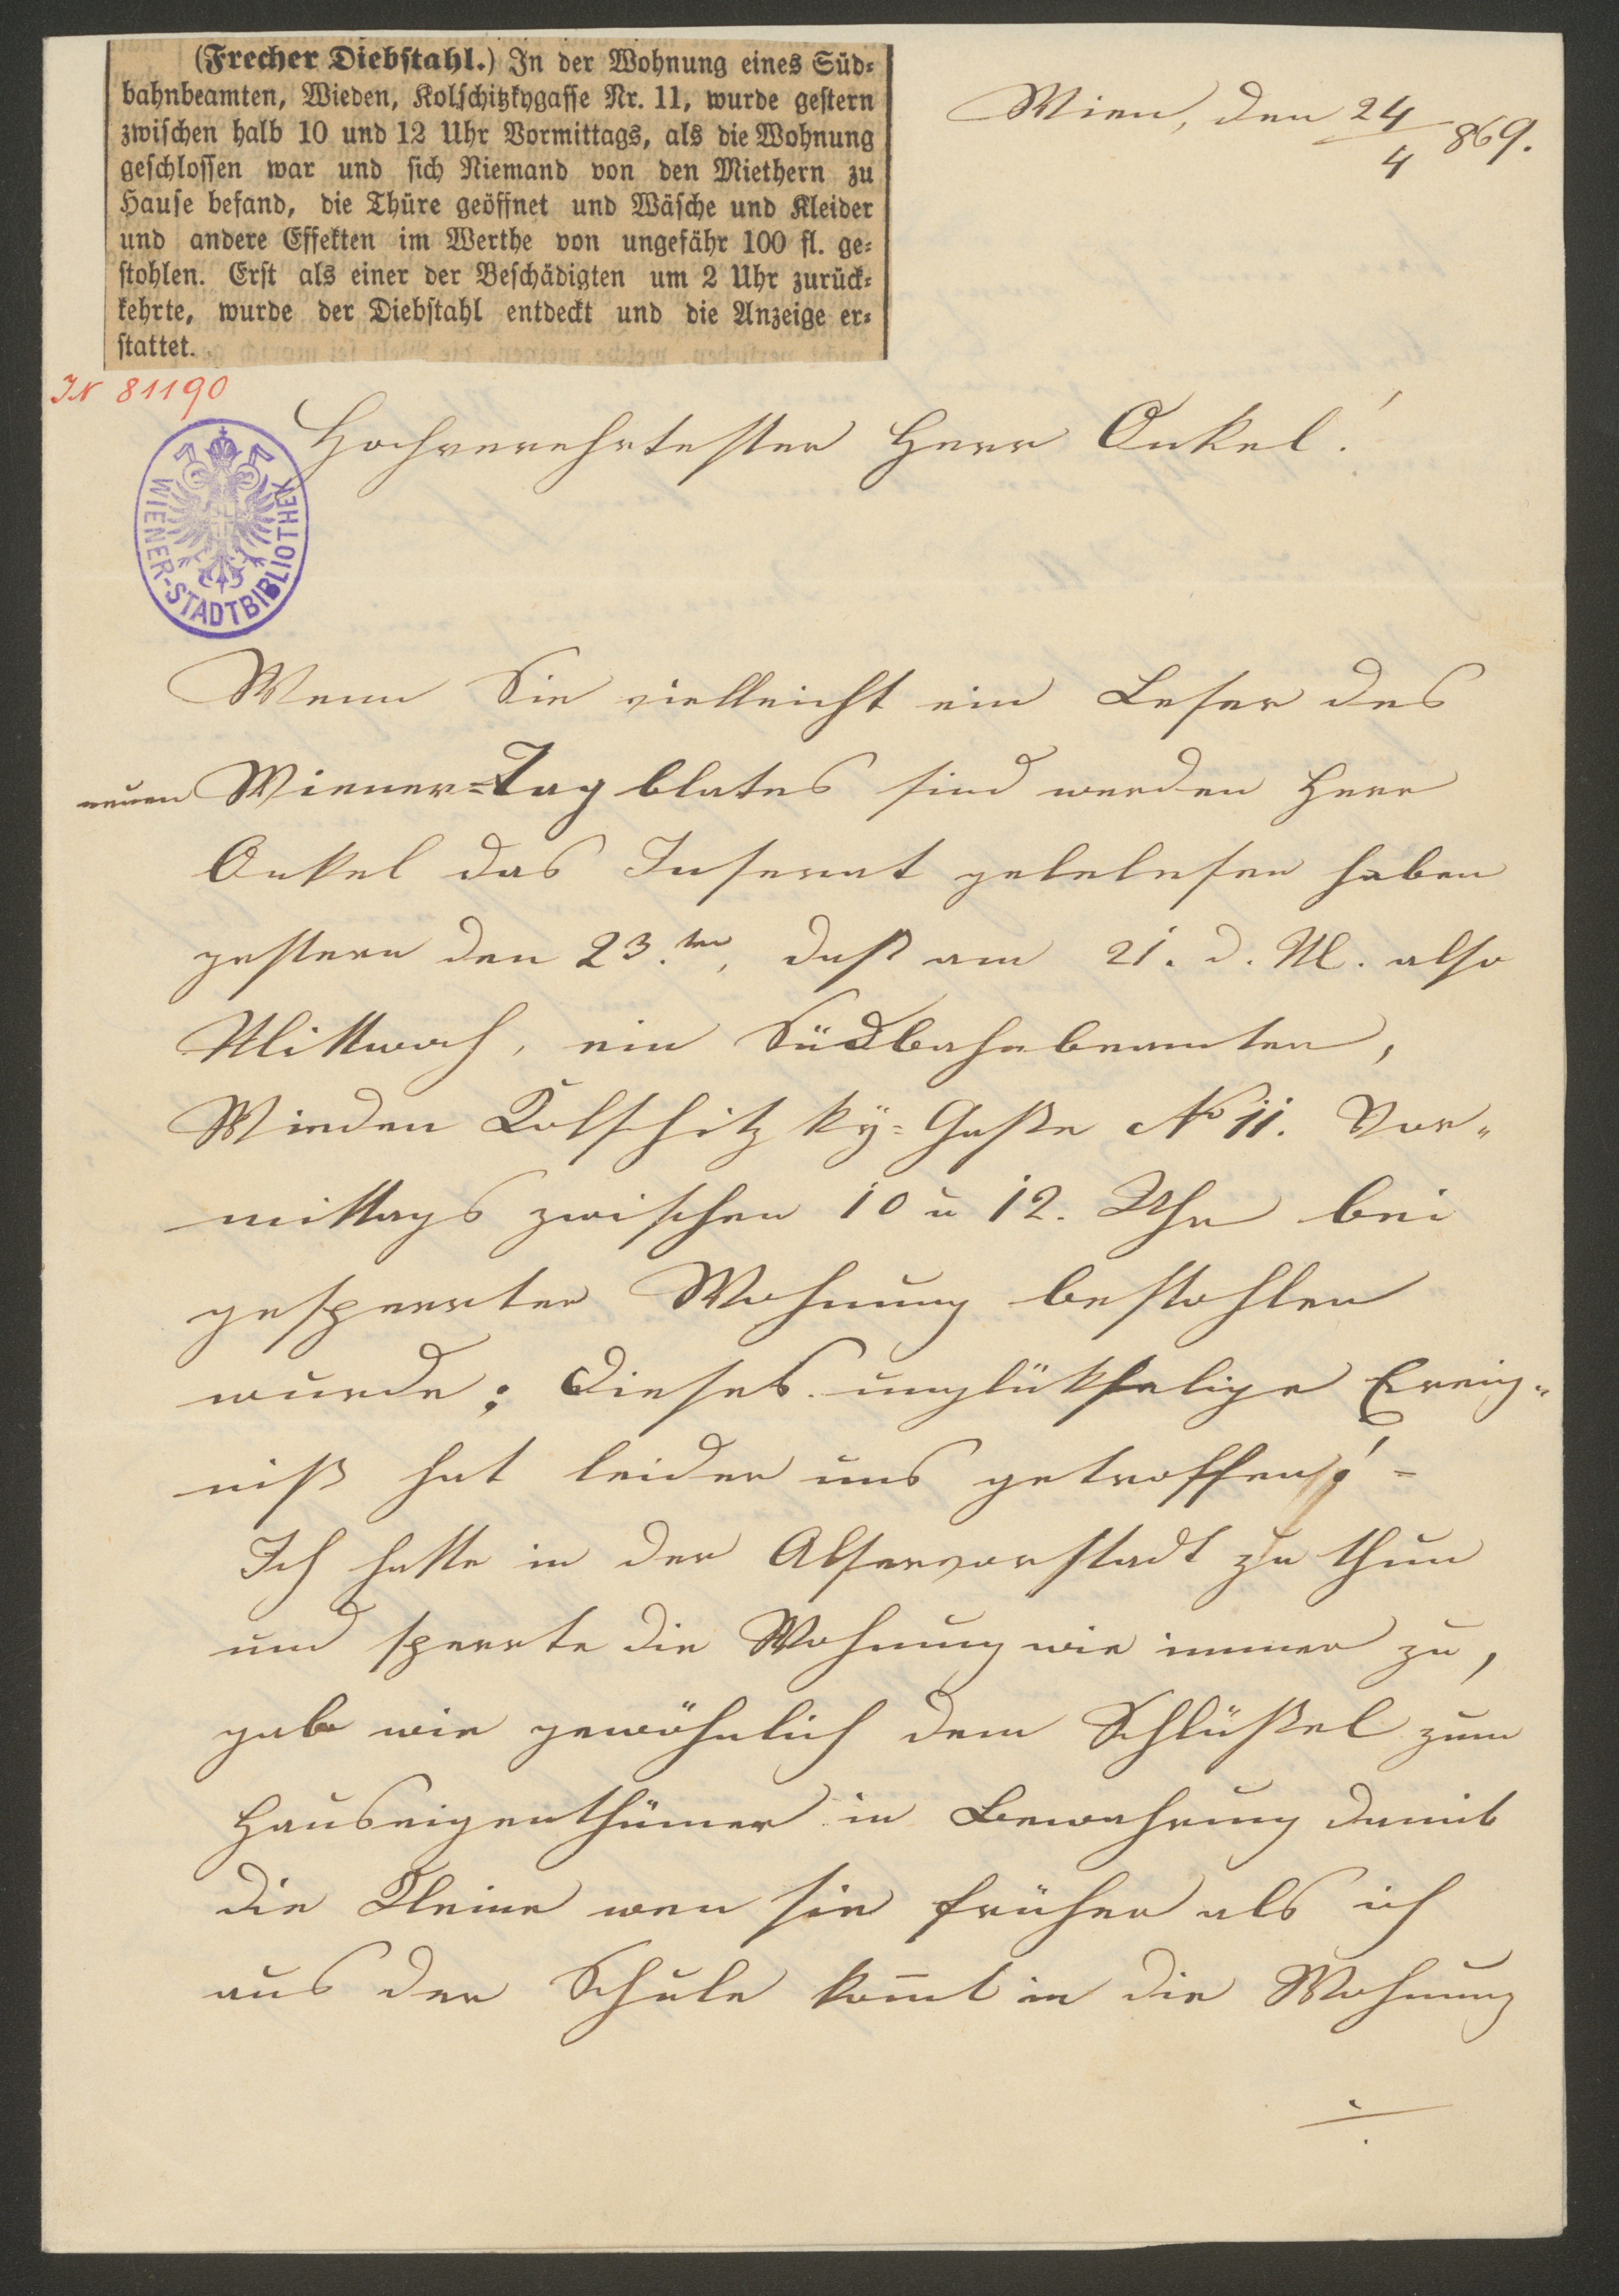 (Frecher Diebstahl.) In der Wohnung eines Süd-
bahnbeamten, Wieden, Kolschitzkygasse Nr. 11, wurde gestern
zwischen halb 10 und 12 Uhr Vormittags, als die Wohnung
geschlossen war und sich Niemand von den Miethern zu
Hause befand, die Thüre geöffnet und Wäsche und Kleider
und andere Effekten im Werthe von ungefähr 100 fl. ge-
stohlen. Erst als einer der Beschädigten um 2 Uhr zurück-
kehrte, wurde der Diebstahl entdeckt und die Anzeige er-
stattet.
Wien, den 24/4 869.
IN 81190
WIENER-STADTBIBLIOTHEK
Hochverehrtester Herr Onkel!
Wenn Sie vielleicht ein Leser des
neuen Wiener=Tagblates sind werden Herr
Onkel das Inserat gelelesen haben
gestern den 23.ten, daß am 21. d. M. also
Mittwoch, ein Südbahnbeamter,
Wieden Kolschitzky=Gaße No 11. Vor„
mittags zwischen 10 u 12. Uhr bei
gesperrter Wohnung bestohlen
wurde; dieses unglükselige Ereig„
niß hat leider uns getroffen! =
Ich hatte in der Alservorstadt zu thun
und sperrte die Wohnung wie immer zu,
gab wie gewöhnlich dem Schlüßel zum
Hauseigenthümer in Bewahrung damit
die Kleine wen sie früher als ich
aus der Schule kom̄t in die Wohnung
./.